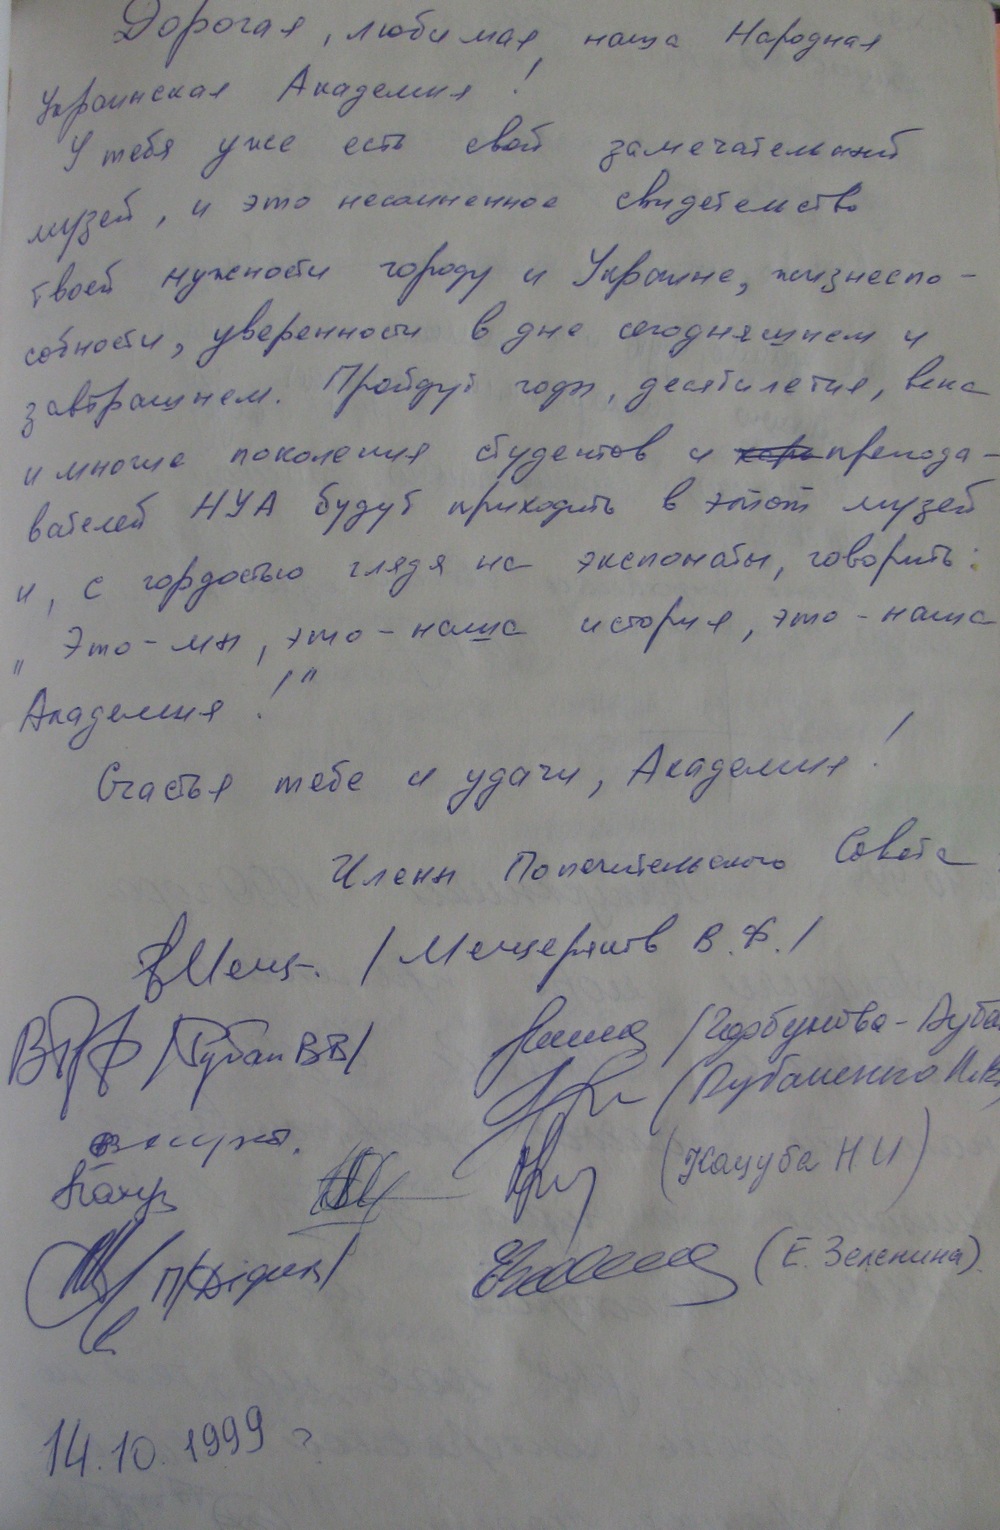 Дорогая, любимая наша Народная
Украинская Академия!
У тебя уже есть свой замечательный
музей, и это несомненное свидетельство
твоей нужности городу и Украине, жизнеспо-
собности, уверенности в дне сегодняшнем и
завтрашнем. Пройдут годы, десятилетия, века
и многие поколения студентов и препода-
вателей НУА будут приходить в этот музей
и, с гордостью глядя на экспонаты, говорить:
"Это - мы, это - наша история, это - наша
Академия!"
Счастья тебе и удачи, Академия!
Члены Попечительского Совета
/Мещеряков В.Ф./
(Кацуба Н И)
(Е. Зеленина)
14.10.1999 г